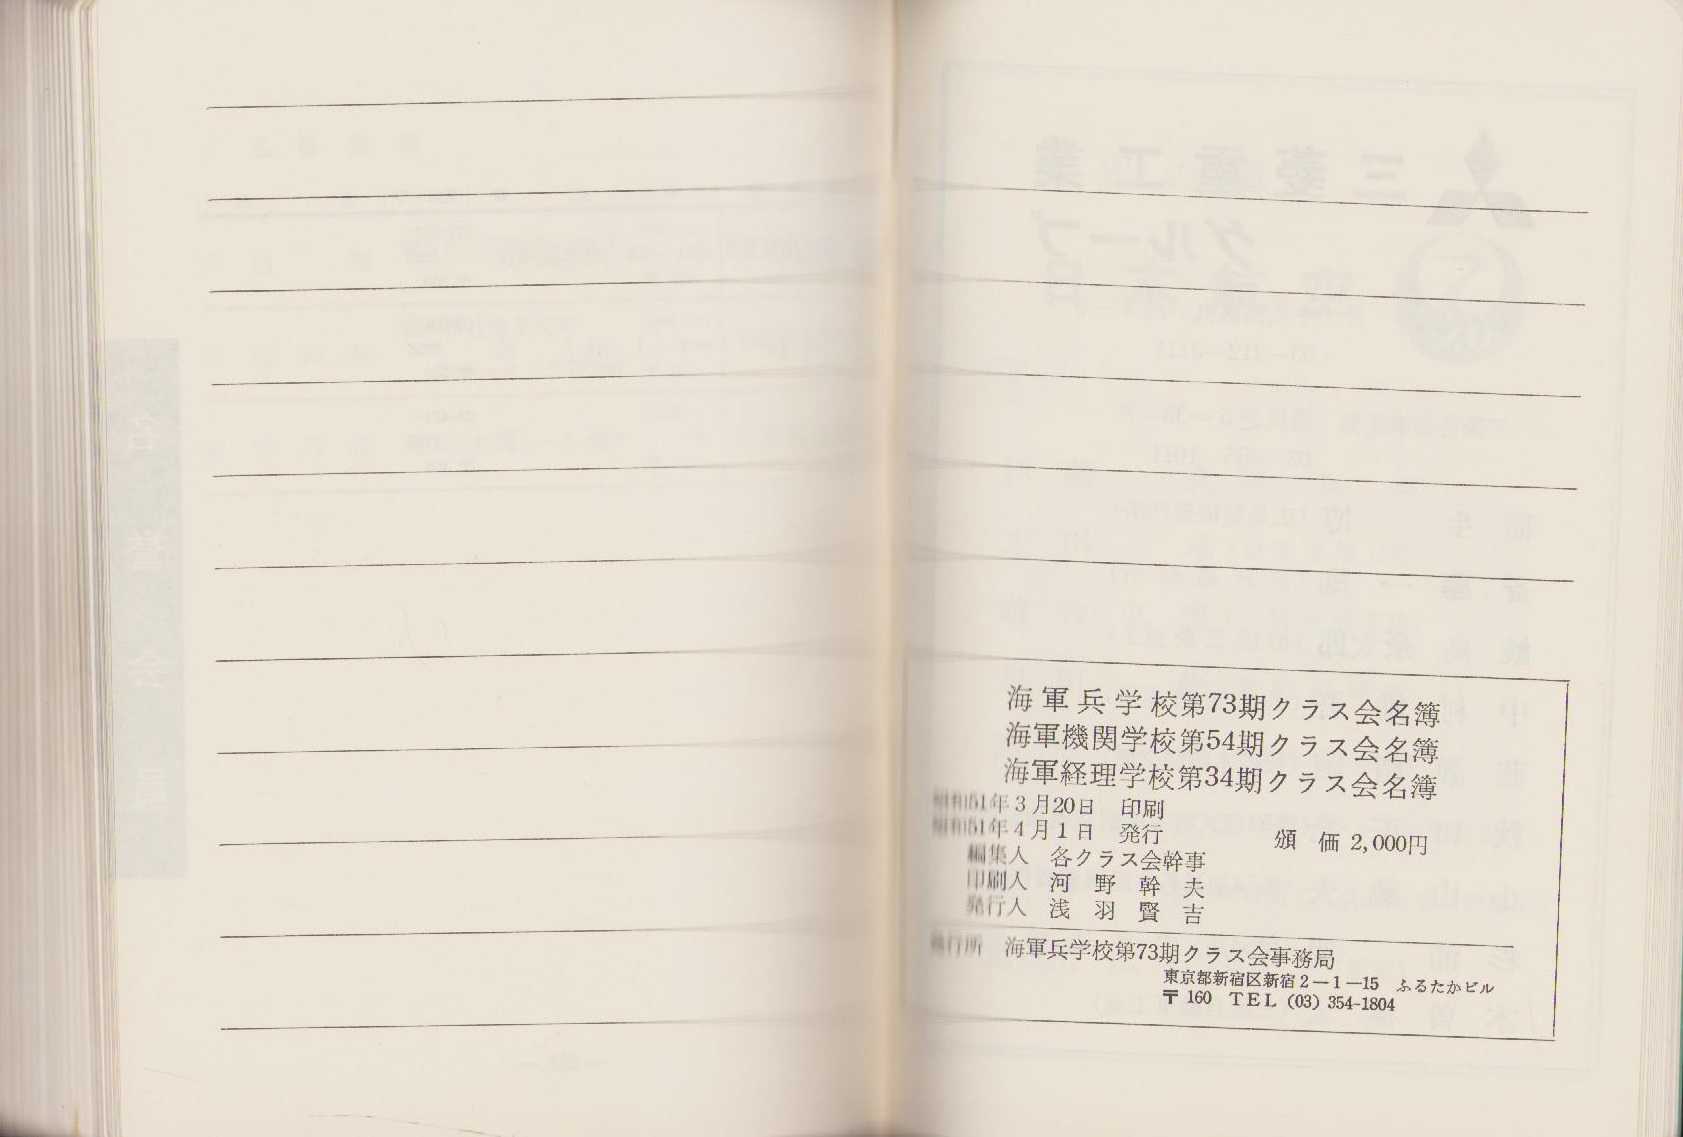 海軍兵学校第73期クラス会名簿
海軍機関学校第54期クラス会名簿
海軍経理学校第34期クラス会名簿
昭和51年3月20日 印刷
昭和51年4月1日 発行
頒価 2,000円
編集人 各クラス会幹事
印刷人 河野幹夫
発行人 浅羽賢吉
発行所 海軍兵学校第73期クラス会事務局
東京都新宿区新宿2-1-15 ふるたかビル
〒160 TEL (03) 354-1804